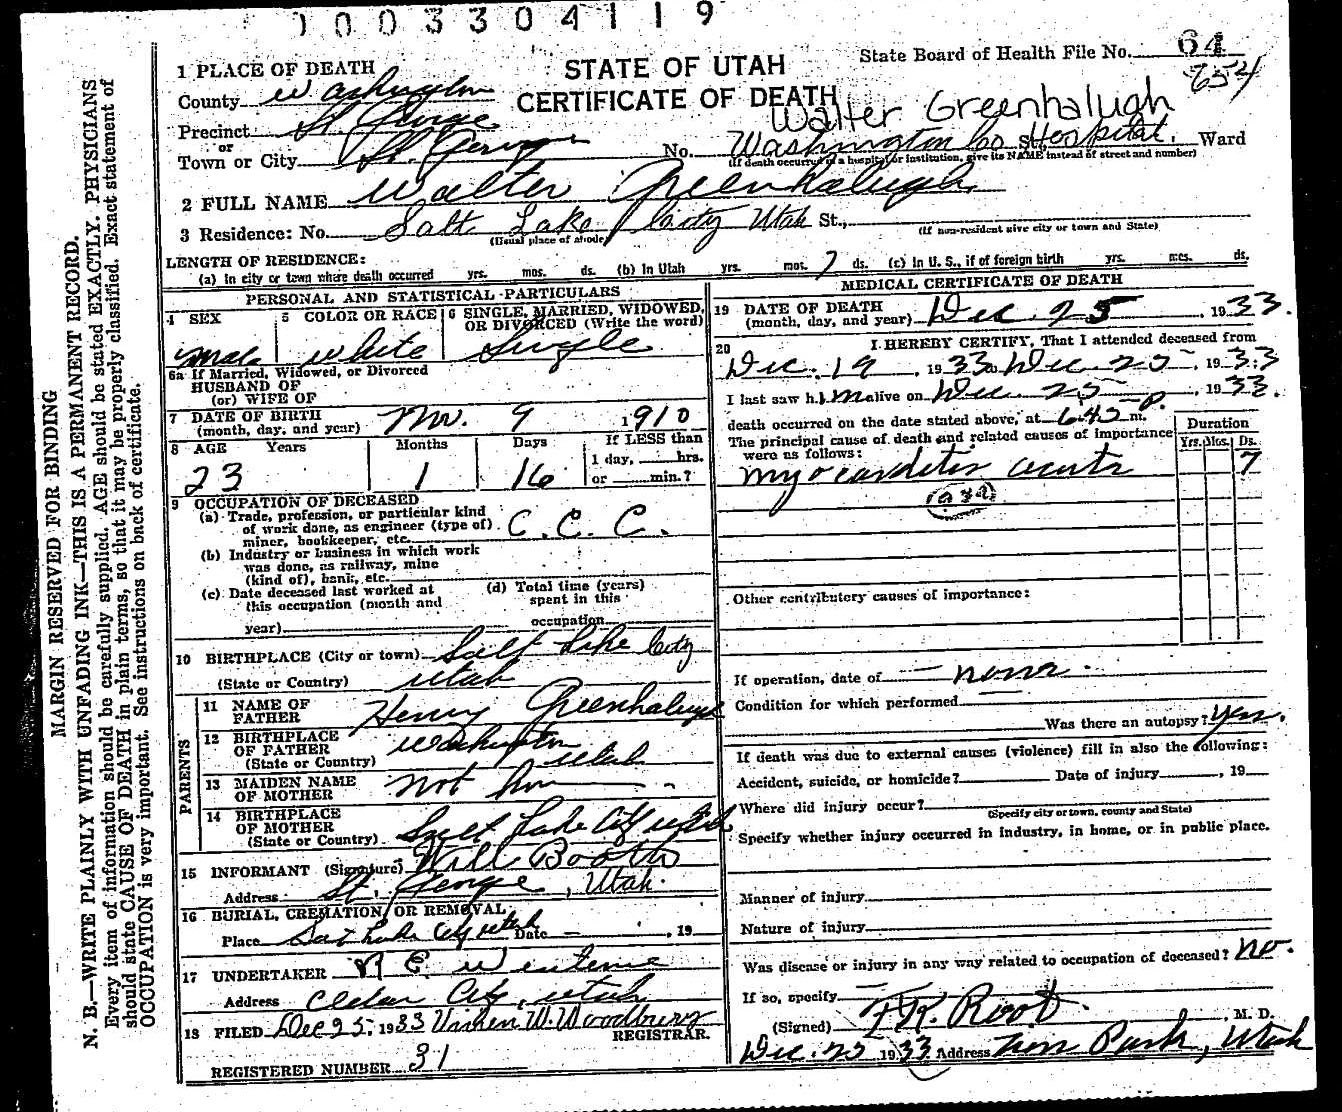 1003304119
State Board of Health File No. 64
654
STATE OF UTAH
CERTIFICATE OF DEATH
Walter Greenhalugh
1 PLACE OF DEATH
County Washington
Precinct St. George
or
Town or City St. George No. Washington Co Hospital St. Ward
(If death occurred in a hospital or institution, give its NAME instead of street and number)
2 FULL NAME Walter Greenhalugh
3 Residence: No. Salt Lake City Utah St.,
(Usual place of abode) (If non-resident give city or town and State)
LENGTH OF RESIDENCE:
(a) In city or town where death occurred yrs. mos. ds. (b) In Utah yrs. mos. 7 ds. (c) In U. S., if of foreign birth yrs. mos. ds.
PERSONAL AND STATISTICAL PARTICULARS
4 SEX 5 COLOR OR RACE 6 SINGLE, MARRIED, WIDOWED, OR DIVORCED (Write the word)
male white Single
6a If Married, Widowed, or Divorced
HUSBAND OF
(or) WIFE OF
7 DATE OF BIRTH
(month, day, and year) Nov. 9 1910
8 AGE Years Months Days If LESS than
23 1 16 1 day, hrs.
or min.?
9 OCCUPATION OF DECEASED
(a) Trade, profession, or particular kind
of work done, as engineer (type of)
miner, bookkeeper, etc. C. C. C.
(b) Industry or business in which work
was done, as railway, mine
(kind of), bank, etc.
(c) Date deceased last worked at
this occupation (month and
year)
(d) Total time (years)
spent in this
occupation
10 BIRTHPLACE (City or town) Salt Lake City
(State or Country) Utah
PARENTS
11 NAME OF
FATHER Henry Greenhalugh
12 BIRTHPLACE
OF FATHER Washington
(State or Country) Utah
13 MAIDEN NAME
OF MOTHER not kno
14 BIRTHPLACE
OF MOTHER
(State or Country) Salt Lake City Utah
15 INFORMANT (Signature) Will Booth
Address St. George, Utah.
16 BURIAL, CREMATION, OR REMOVAL
Place Salt Lake City Utah Date , 19
17 UNDERTAKER
Address Cedar City, Utah
18 FILED Dec 25, 1933 W. Woodbury
REGISTRAR.
REGISTERED NUMBER 31
MEDICAL CERTIFICATE OF DEATH
19 DATE OF DEATH
(month, day, and year) Dec. 25, 1933.
20 I HEREBY CERTIFY, That I attended deceased from
Dec. 19, 1933 Dec. 25, 1933
I last saw him alive on Dec. 25, 1933.
death occurred on the date stated above, at 6:45 P. m.
The principal cause of death and related causes of importance
were as follows:
Duration
Yrs. Mos. Ds.
myocarditis acute 7
Other contributory causes of importance:
If operation, date of none.
Condition for which performed
Was there an autopsy? Yes.
If death was due to external causes (violence) fill in also the following:
Accident, suicide, or homicide? Date of injury , 19
Where did injury occur?
(Specify city or town, county and State)
Specify whether injury occurred in industry, in home, or in public place.
Manner of injury
Nature of injury
Was disease or injury in any way related to occupation of deceased? no.
If so, specify
(Signed) Root , M. D.
Dec. 25 1933 Address Park, Utah
MARGIN RESERVED FOR BINDING
N. B.—WRITE PLAINLY WITH UNFADING INK—THIS IS A PERMANENT RECORD.
Every item of information should be carefully supplied. AGE should be stated EXACTLY. PHYSICIANS
should state CAUSE OF DEATH in plain terms, so that it may be properly classified. Exact statement of
OCCUPATION is very important. See instructions on back of certificate.